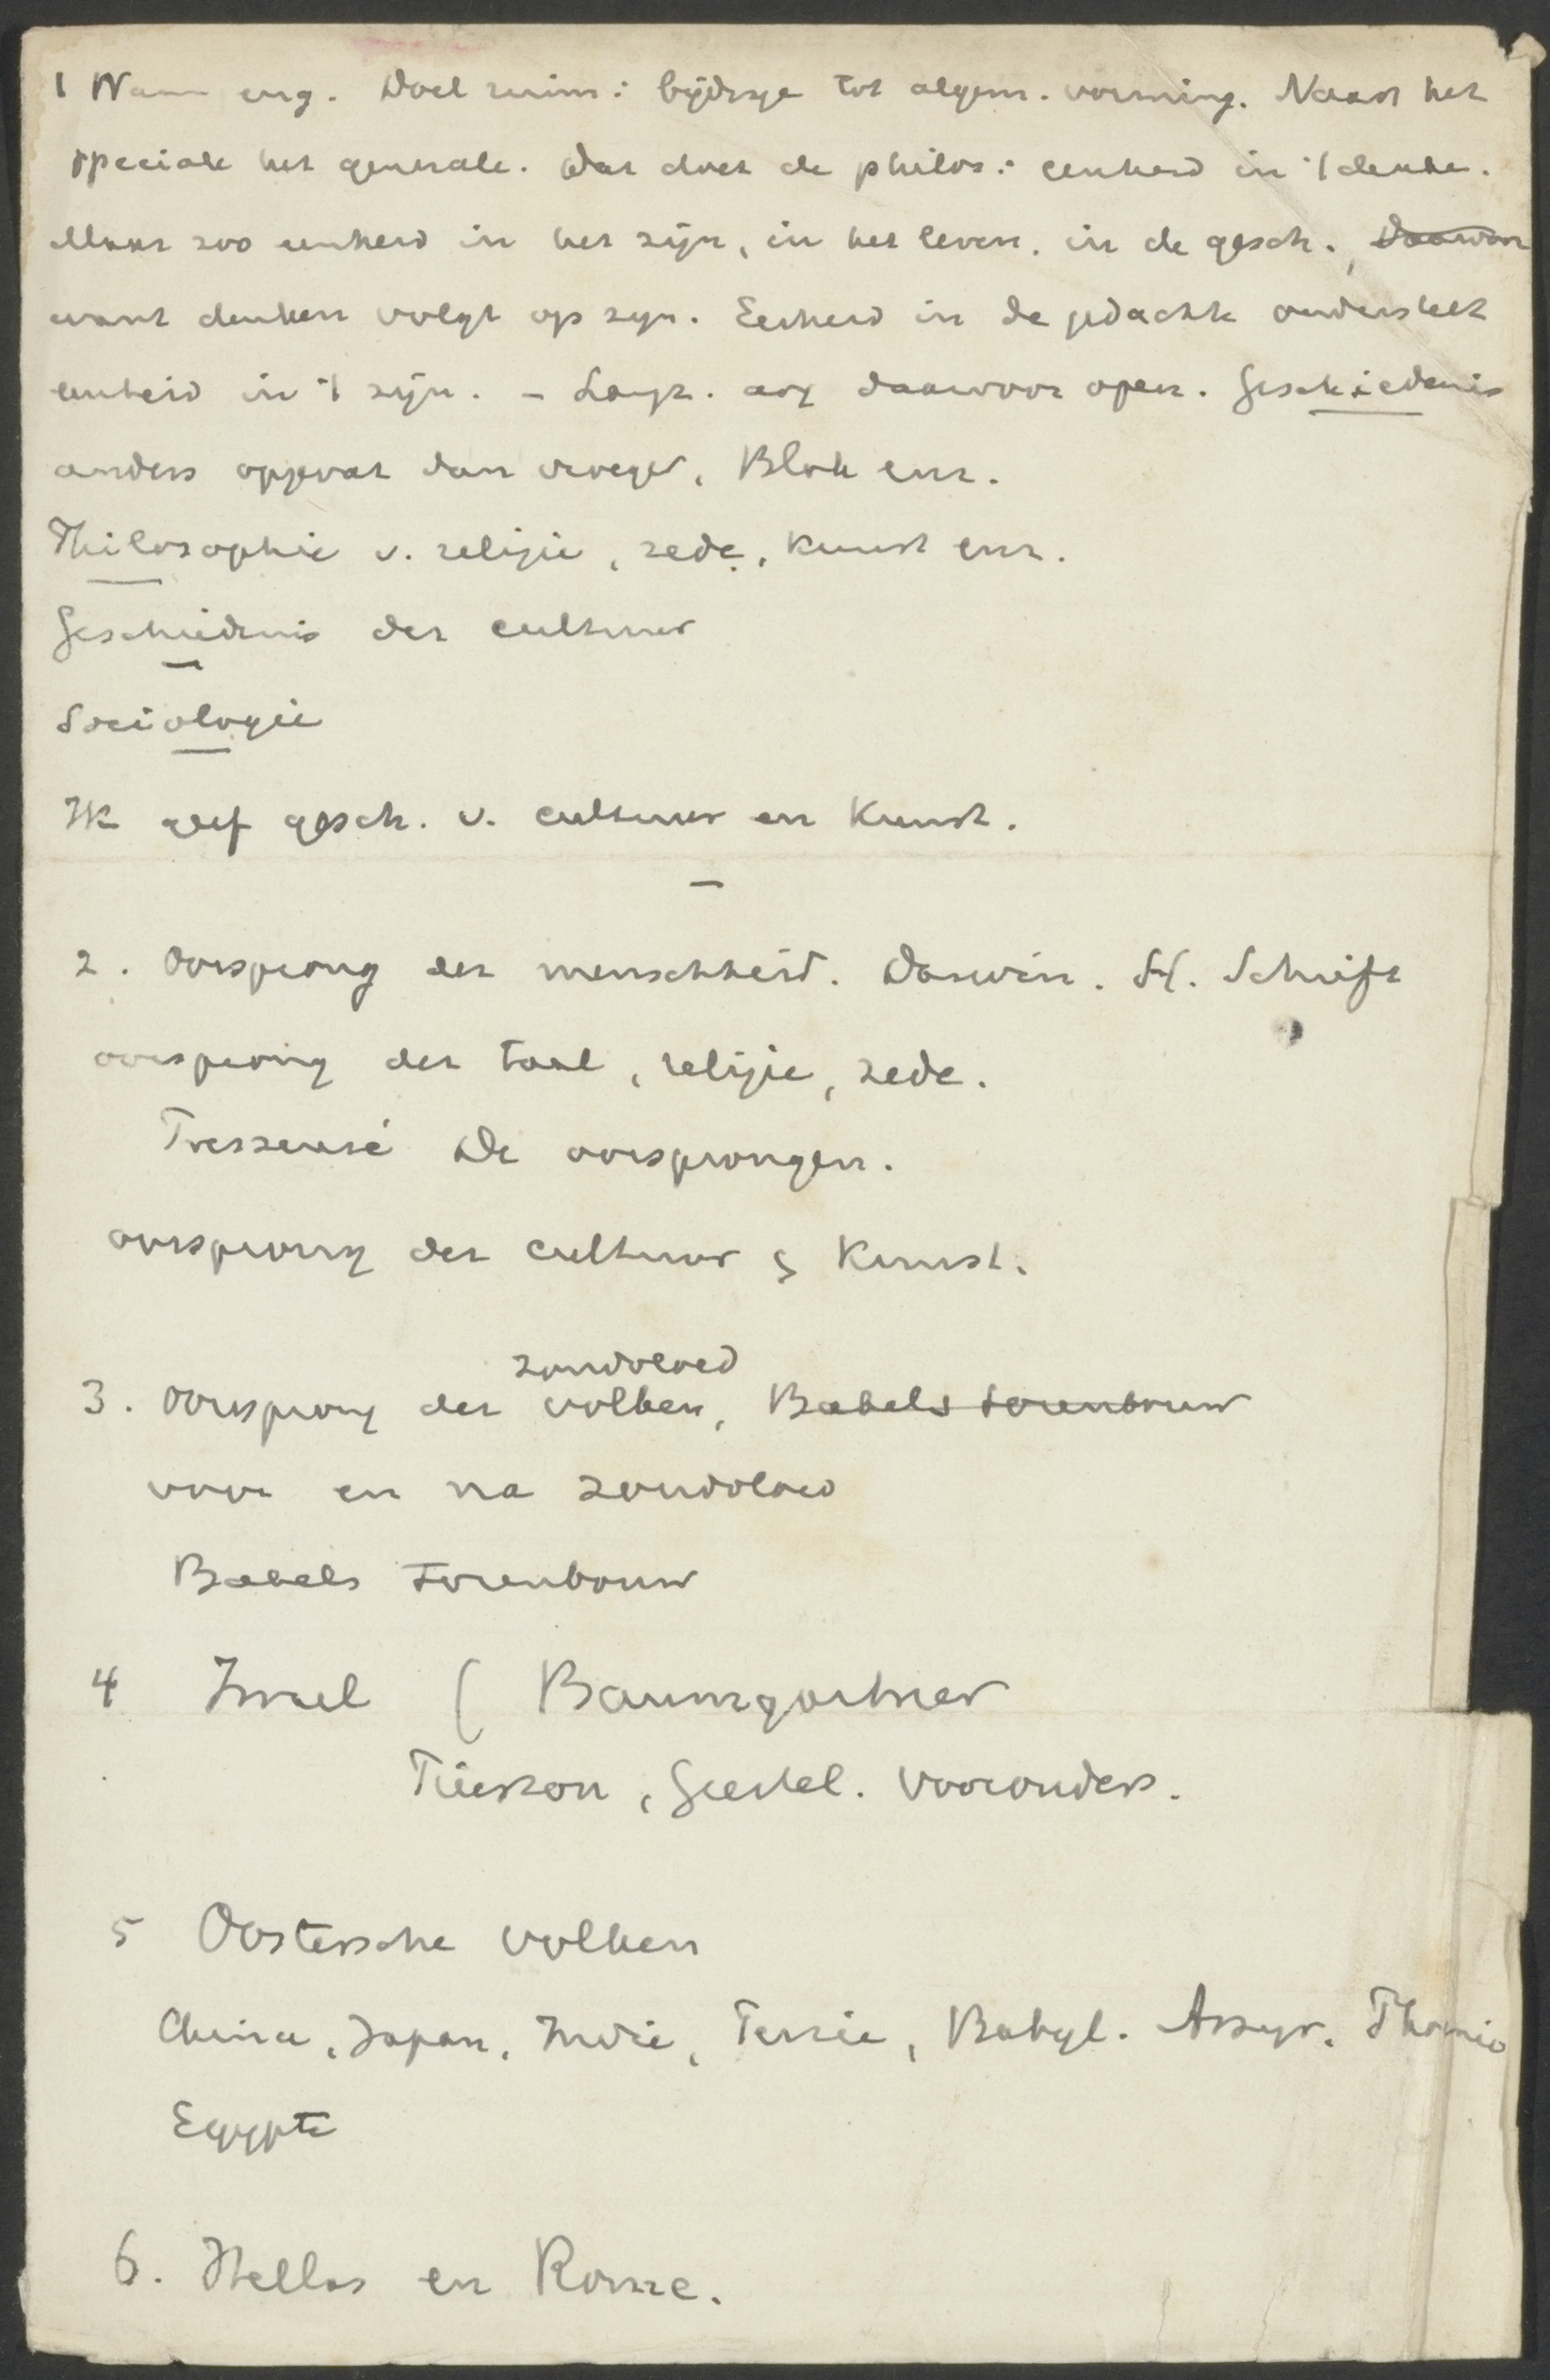 1 Naam eng. Doel ruim: bijdrage tot algem. vorming. Naast het
speciale het generale. Dat doet de philos: eenheid in 't denken.
Maar zoo eenheid in het zijn, in het leven, in de gesch., Daarvan
want denken volgt op zijn. Eenheid in de gedachte onderstelt
eenheid in 't zijn. - oog daarvoor open. Geschiedenis
anders opgevat dan vroeger, Blok enz.
Philosophie v. religie, zede, kunst enz.
Geschiedenis der cultuur
Sociologie
Ik geef gesch. v. cultuur en Kunst.
2. Oorsprong der menschheid. Darwin. H. Schrift
oorsprong der taal, religie, zede.
Pressensé De oorsprongen.
oorsprong der cultuur & Kunst.
zondvloed
3. Oorsprong der volken, Babels torenbouw
voor en na zondvloed
Babels torenbouw
4 Israel ( Baumgartner
Pierson, Geestel. Voorouders.
5 Oostersche volken
China, Japan, Indie, Perzie, Babyl. Assyr.
Egypte
6. Hellas en Rome.